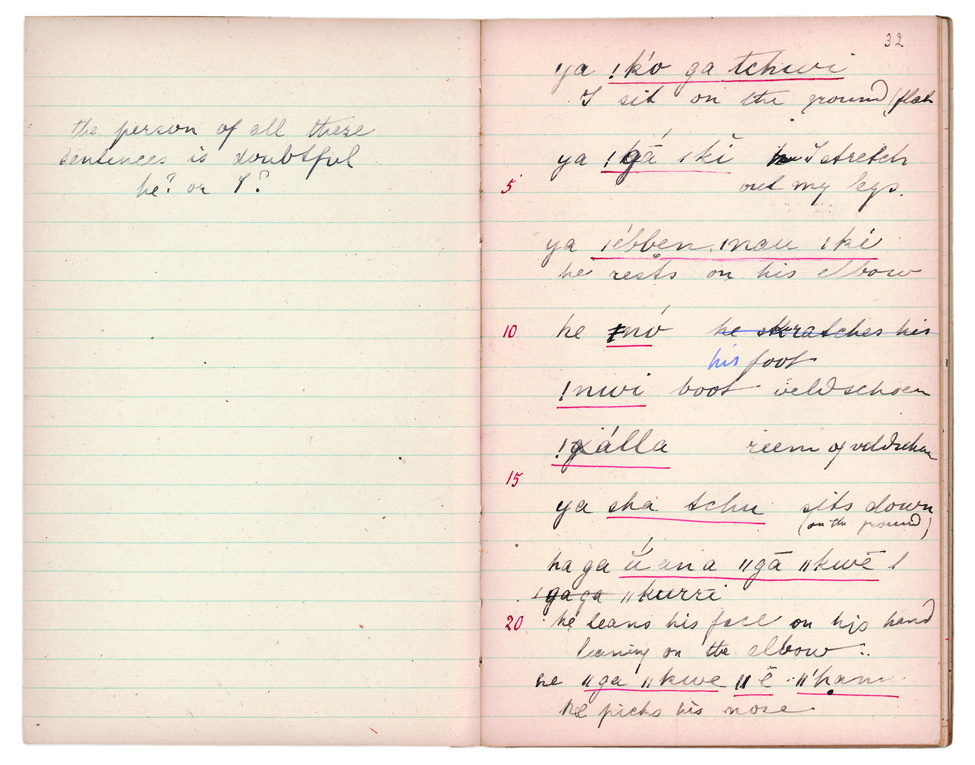 the person of all these
sentences is doubtful
he? or I?
32
ya !k'o ga tchwi
I sit on the ground (flat
ya !gā ıkĭ I stretch
5 out my legs.
ya ıébben ınau ıké
he rests on his elbow
10 he ǂnó he skratches his
his foot
!nwi boot veldschoen
!gálla reem of veldschoen
15
ya sha tchu sits down
(on the ground)
ha ga ú an a ǁgā ǁkwē
ga ga ǁkurri
20 he leans his face on his hand
leaning on the elbow :.
he ǁga ǁkwe ǁē
he picks his nose.